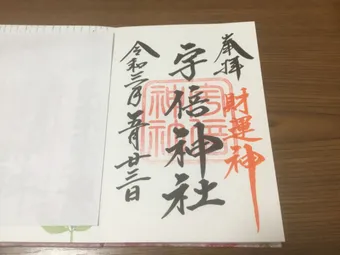 奉拝
財運神
宇倍神社
宇倍神社
令和三年五月廿三日